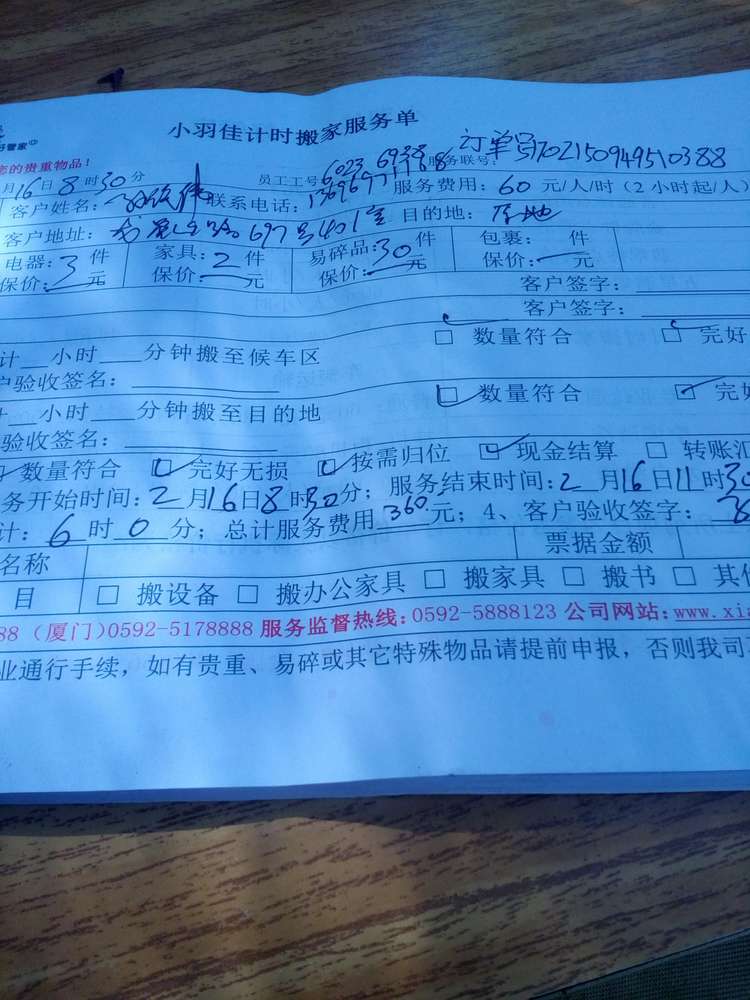 小羽佳计时搬家服务单
好管家
您的贵重物品!
订单号1702150949510388
月16日8时30分 员工工号:6023 6938 服务联号:
客户姓名: 联系电话: 服务费用:60元/人/时(2小时起/人)
客户地址: 697号401室 目的地:本地
电器:3件 家具:2件 易碎品:30件 包裹: 件
保价: 元 保价: 元 保价: 元 保价: 元
客户签字:
客户签字:
计 小时 分钟搬至候车区 □数量符合 □完好
户验收签名:
计 小时 分钟搬至目的地 □数量符合 □完好
验收签名:
数量符合 □完好无损 □按需归位 □现金结算 □转账汇
务开始时间:2月16日8时30分;服务结束时间:2月16日11时30
计:6时0分;总计服务费用360元;4、客户验收签字:
名称 票据金额
目 □搬设备 □搬办公家具 □搬家具 □搬书 □其他
88(厦门)0592-5178888 服务监督热线:0592-5888123 公司网站:www.xia
业通行手续,如有贵重、易碎或其它特殊物品请提前申报,否则我司